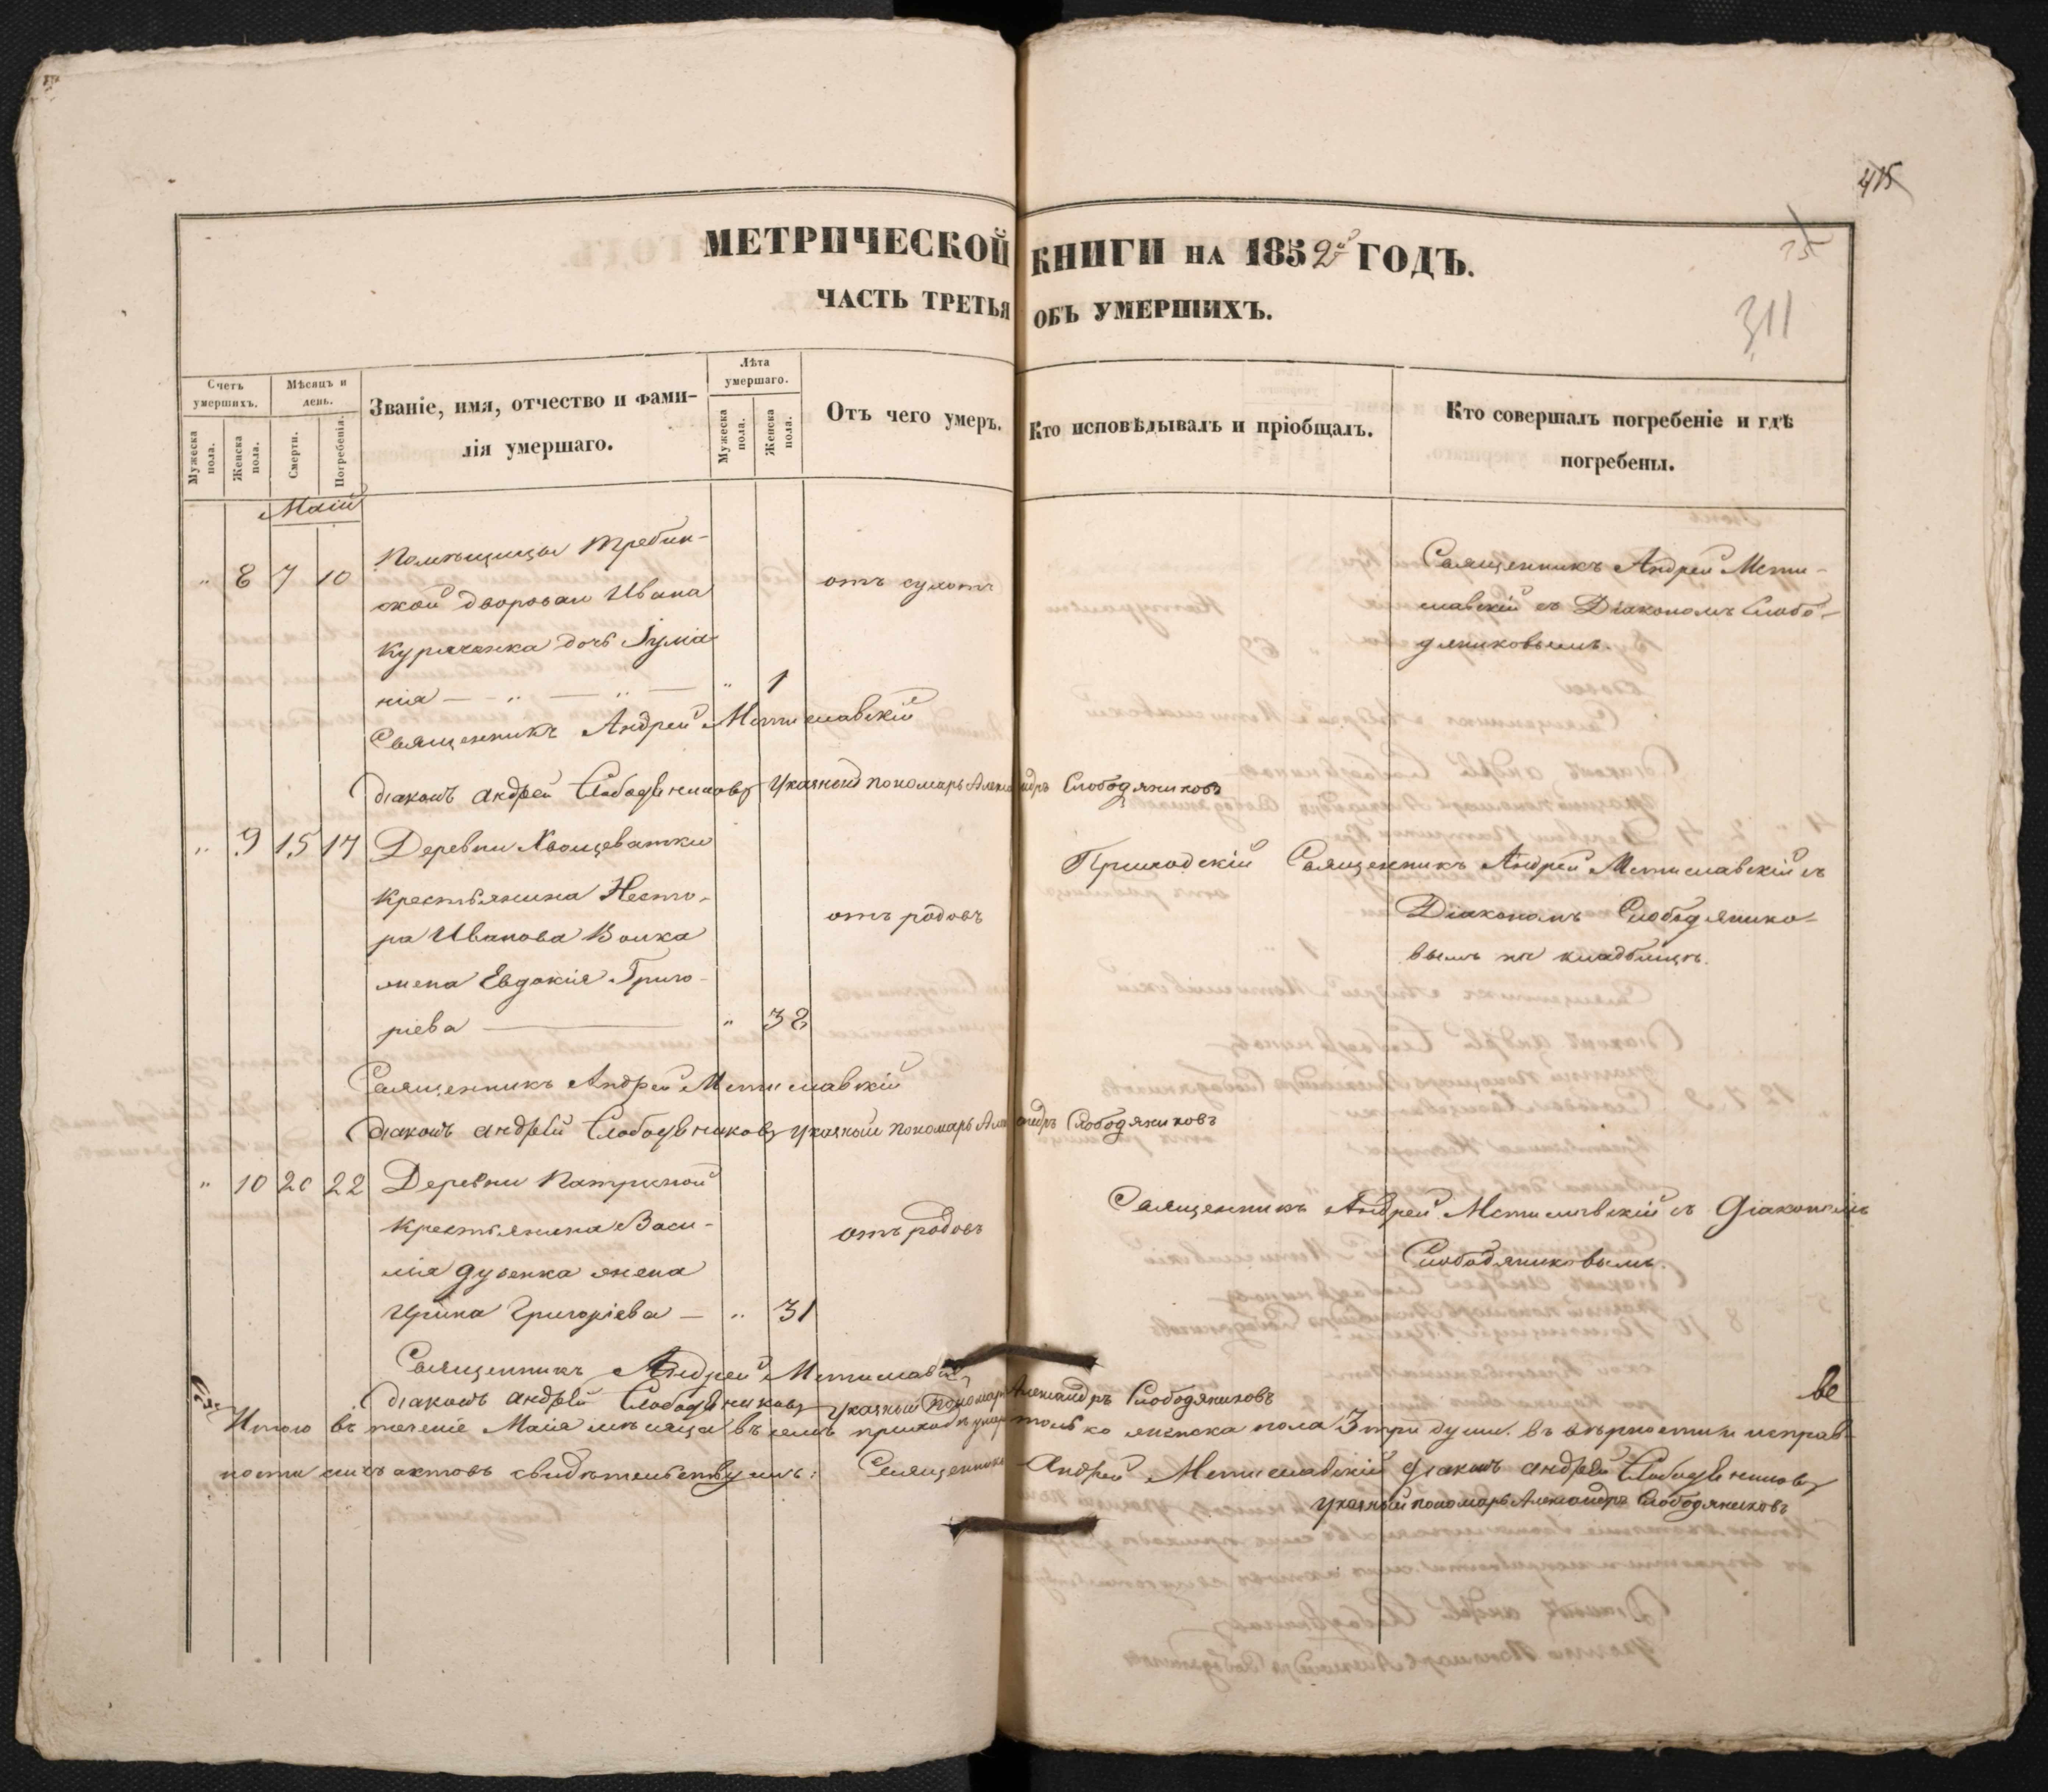 415
МЕТРИЧЕСКОЙ КНИГИ НА 1852й ГОДЪ.
ЧАСТЬ ТРЕТЬЯ ОБЪ УМЕРШИХЪ.
311
Счетъ умершихъ.
Мужеска пола.
Женска пола.
Мѣсяцъ и день.
Смерти.
Погребенія.
Званіе, имя, отчество и фами-
лія умершаго.
Лѣта умершаго.
Мужеска пола.
Женска пола.
Отъ чего умеръ.
Кто исповѣдывалъ и пріобщалъ.
Кто совершалъ погребеніе и гдѣ
погребены.
Маій
" 8 7 10 Помѣщицы Требин-
ской дворован Ивана
дочь Іуліа-
нія — " — " — " 1
отъ сухотъ
Священникъ Андрей Мсти-
славскій съ Діакономъ Слобо-
дяниковымъ.
Священникъ Андрей Мстиславскій
Діаконъ Андрей Слободяниковъ Указный пономарь Александръ Слободяниковъ
" 9 15 17 Деревни Хвощеватки
крестьянина Несто-
ра Иванова Волка
жена Евдокія Григо-
ріева — " 38
отъ родовъ
Приходскій Священникъ Андрей Мстиславскій съ
Діакономъ Слободянико-
вымъ на кладбищѣ.
Священникъ Андрей Мстиславскій
Діаконъ Андрей Слободяниковъ Указный пономарь Александръ Слободяниковъ
" 10 20 22 Деревни
крестьянина Васи-
лія жена
Ирина Григоріева — " 31
отъ родовъ
Священникъ Андрей Мстиславскій съ Діакономъ
Слободяниковымъ.
Священникъ Андрей Мстиславскій
Діаконъ Андрей Слободяниковъ Указный Пономарь Александръ Слободяниковъ
Итого въ теченіе Маія мѣсяца въ семъ приходѣ умерло только женска пола 3 три души. въ вѣрности и исправ-
ности сихъ актовъ свидѣтельствуемъ: Священникъ Андрей Мстиславскій Діаконъ Андрей Слободяниковъ
Указный пономарь Александръ Слободяниковъ